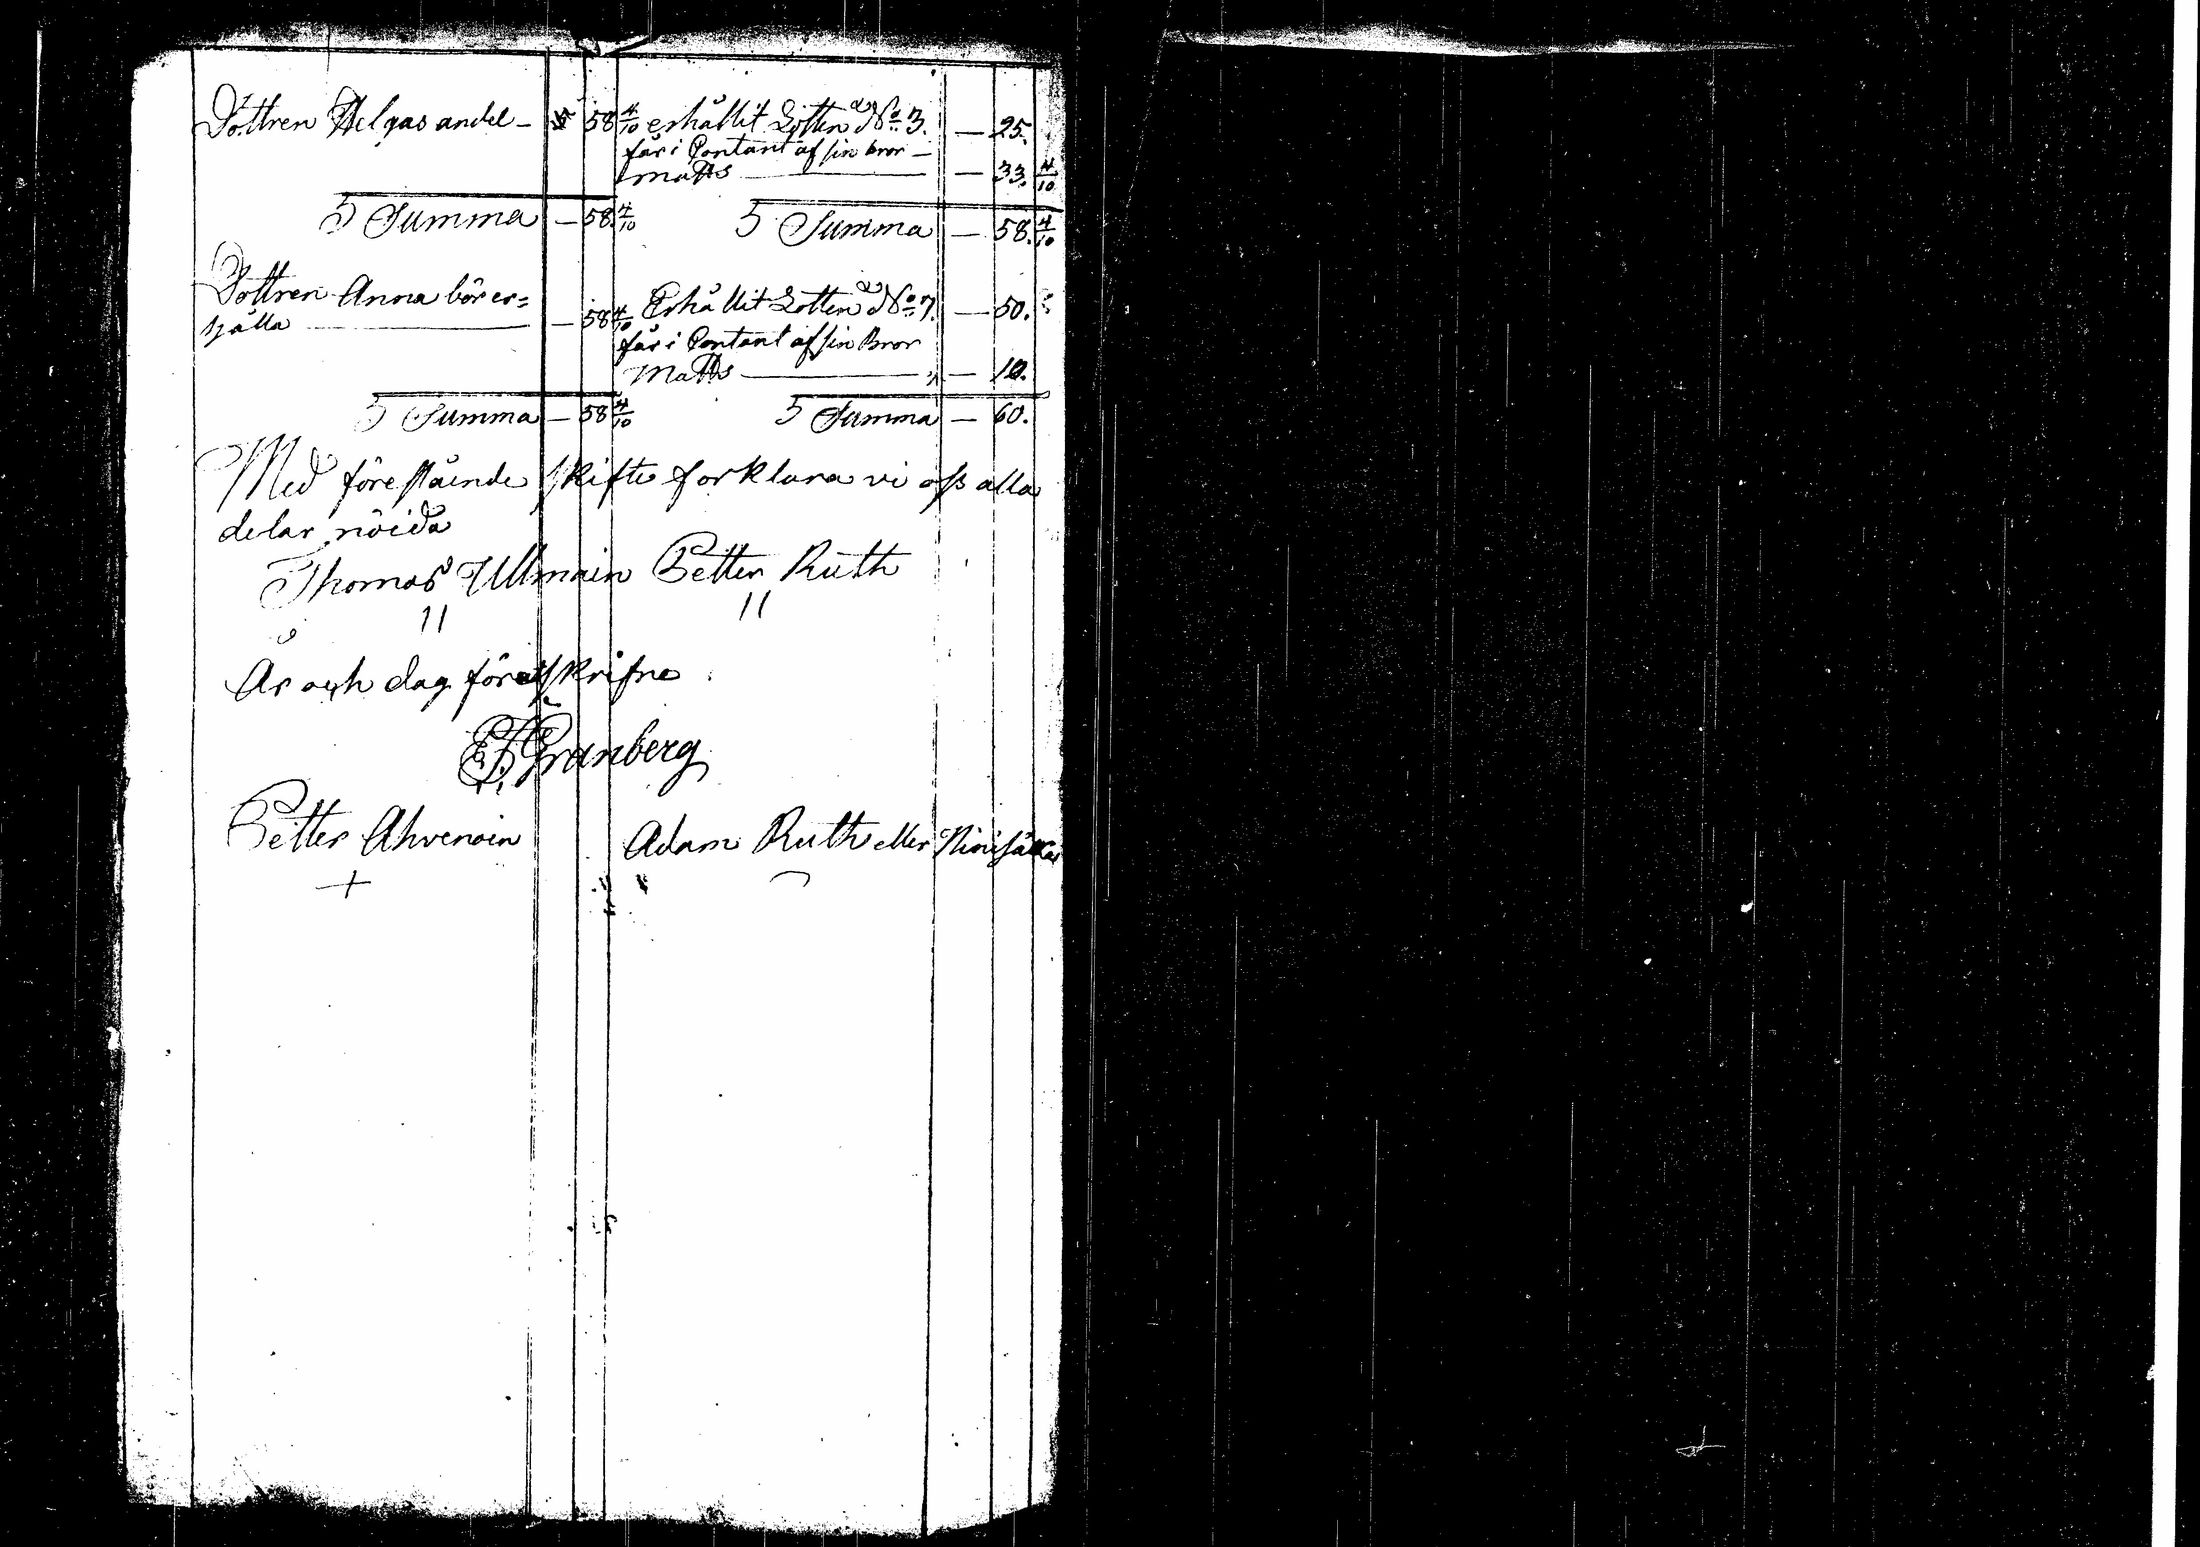 Dottren Helgas andel – 58 4/10 erhållit Lotten No 3. — 25.
får i Contant af sin bror —
Matts — 33. 4/10
Summa — 58. 4/10 Summa — 58. 4/10
Dottren Anna bör er=
hålla — 58 4/10 Erhållit Lotten No 7. — 50.
får i Contant af sin Bror
Matts — 10.
Summa — 58 4/10 Summa — 60.
Med förestående skifte forklara vi oss alla
delar nöida
Thomas Ullmain Petter Ruth
År och dag förutskrifne
Granberg
Petter Ahvenain Adam Ruth eller